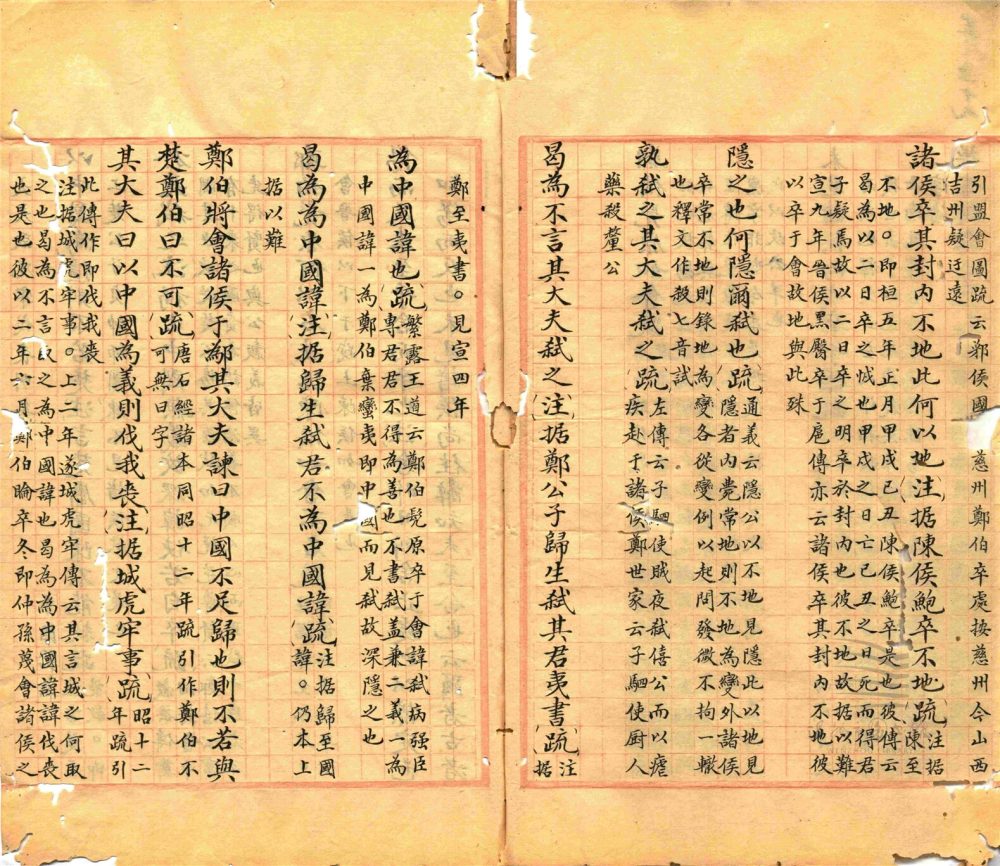 引盟會圖疏云鄭侯國 慈州鄭伯卒處按慈州今山西
吉州疑迂遠
諸侯卒其封內不地此何以地(注)据陳侯鮑卒不地(疏)注据
陳至
不地。即桓五年正月甲戌己丑陳侯鮑卒是也彼傳云
曷為以二日卒之怴也甲戌之日亡己丑之日死而得君
子疑焉故以二日卒之明卒於封內也彼不地故据以難
宣九年晉侯黑臀卒于扈傳亦云諸侯卒其封內不地彼
以卒于會故地與此殊
隱之也何隱爾弒也(疏)通義云隱公以不地見隱此以地見
隱者內薨常地則不地為變外諸侯
卒常不地則錄地為變各從變例以起問發微不拘一轍
也釋文作殺七音試
孰弒之其大夫弒之(疏)左傳云子駟使賊夜弒僖公而以瘧
疾赴于諸侯鄭世家云子駟使厨人
藥殺釐公
曷為不言其大夫弒之(注)据鄭公子歸生弒其君夷書(疏)注
据
鄭至夷書。見宣四年
為中國諱也(疏)繁露王道云鄭伯髡原卒于會諱弒病强臣
專君君不得為善也不書弒盖兼二義一為
中國諱一為鄭伯棄蠻夷即中國而見弒故深隱之也
曷為為中國諱(注)据歸生弒君不為中國諱(疏)注据歸至國
諱。仍本上
据以難
鄭伯將會諸侯于鄬其大夫諫曰中國不足歸也則不若與
楚鄭伯曰不可(疏)唐石經諸本同昭十二年疏引作鄭伯不
可無曰字
其大夫曰以中國為義則伐我喪(注)据城虎牢事(疏)昭十二
年疏引
此傳作即伐我喪
注据城虎牢事。上二年遂城虎牢傳云其言城之何取
之也曷為不言取之為中國諱也曷為為中國諱諱伐喪
也是也彼以二年六月鄭伯睔卒冬即仲孫蔑會諸侯之